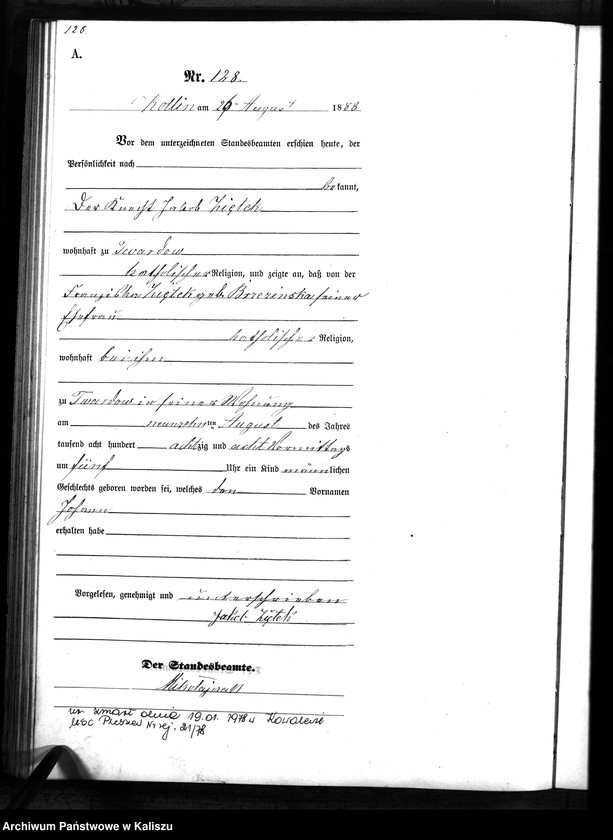 126.
A.
Nr. 128.
am 26 August 1888
Vor dem unterzeichneten Standesbeamten erschien heute, der
Persönlichkeit nach
bekannt,
Der Knecht Jakob Ziętek
wohnhaft zu Twardow
katholischer Religion, und zeigte an, daß von der
Franziska Ziętek geb. Brzezinska seiner
Ehefrau
katholischer Religion,
wohnhaft bei ihm
zu Twardow in seiner Wohnung
am neunzehnten August des Jahres
tausend acht hundert achtzig und acht Vormittags
um fünf Uhr ein Kind männlichen
Geschlechts geboren worden sei, welches den Vornamen
Johann
erhalten habe
Vorgelesen, genehmigt und unterschrieben
Jakob Ziętek
Der Standesbeamte.
zmarł dnia 19.01.1978 w
USC Nr rej. 21/78
Archiwum Państwowe w Kaliszu